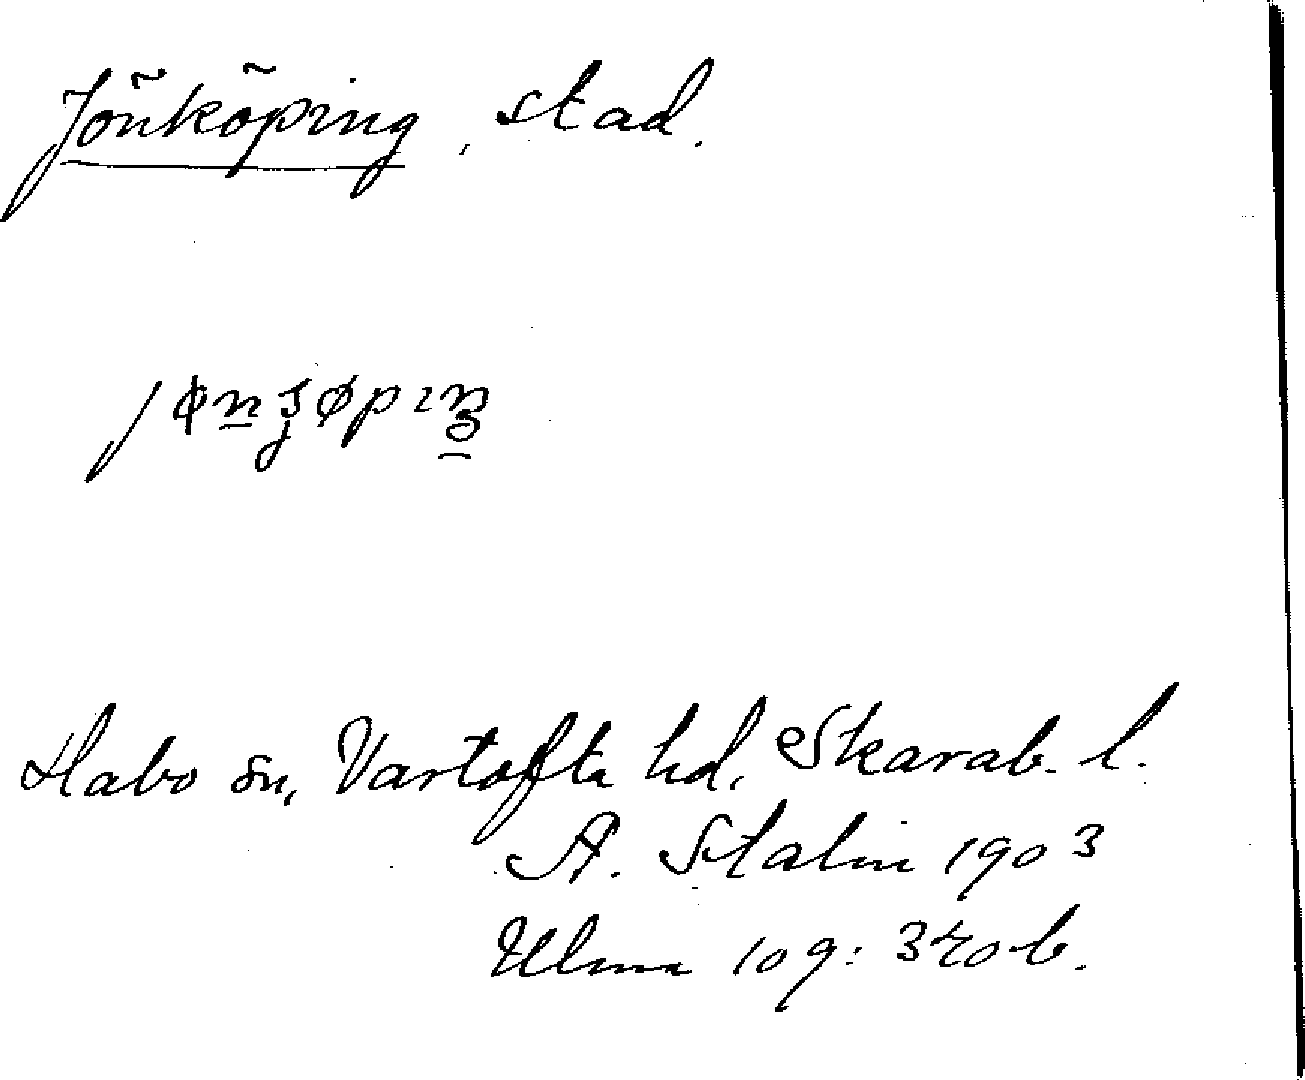 Jönköping, stad.
Habo sn, Vartofta hd, Skarab. l.
A. Stalin 1903
Ulma 109: